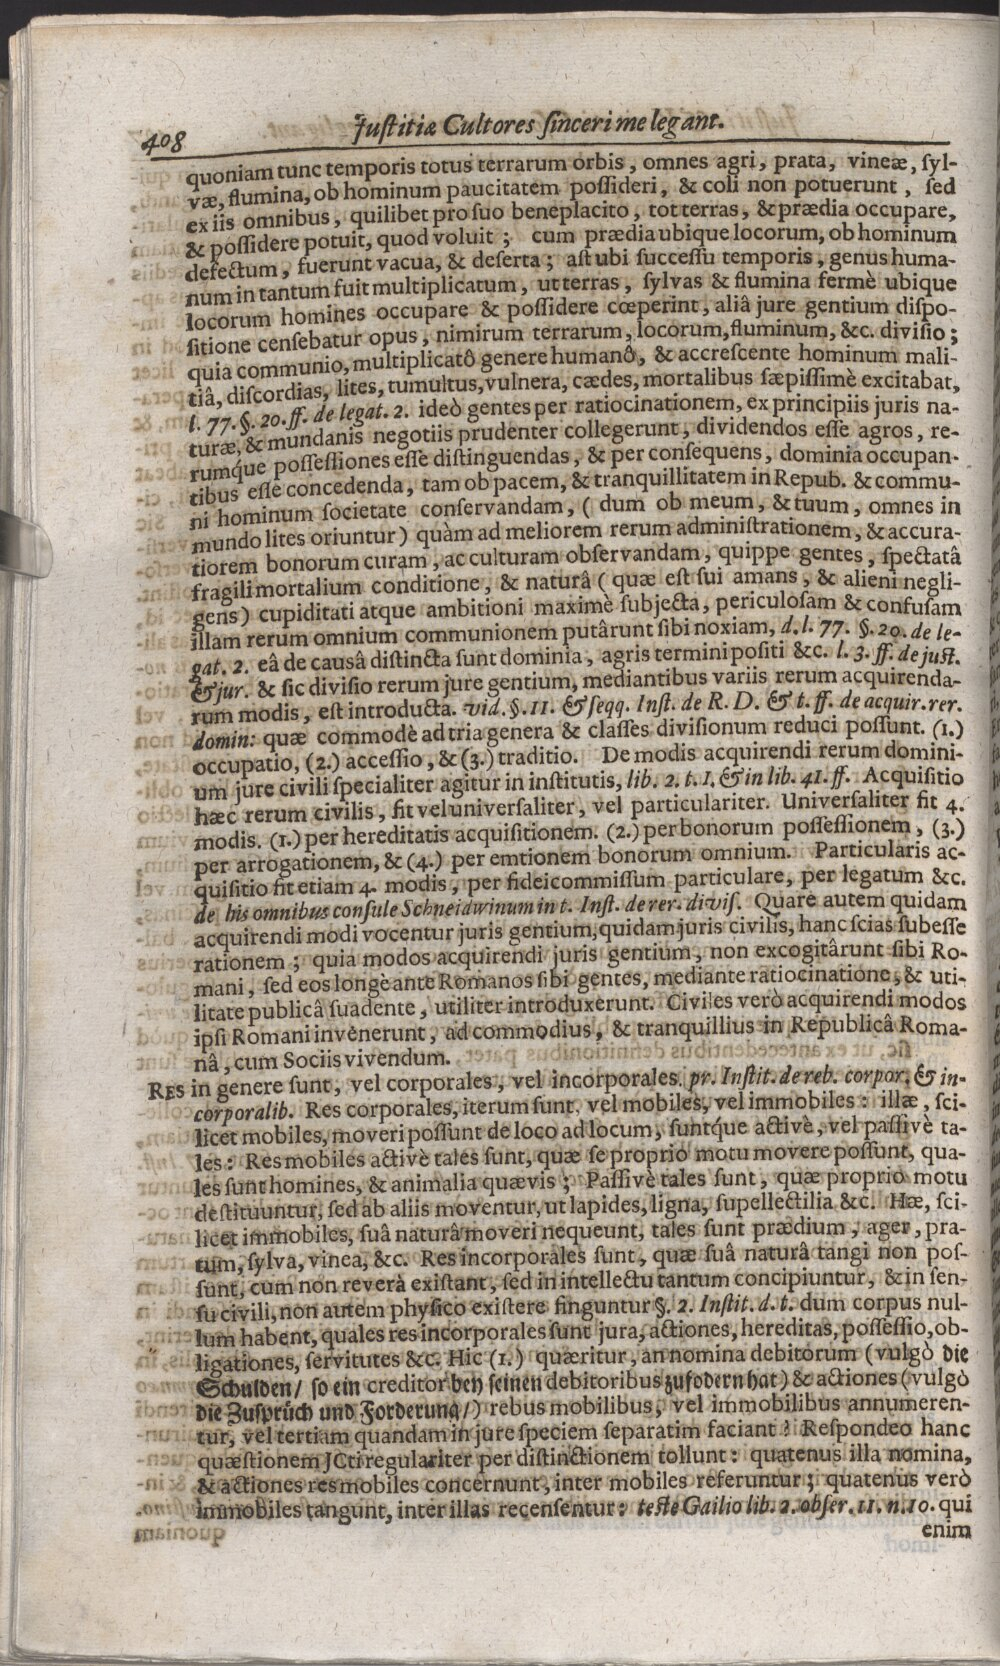 408 Justitiæ Cultores sinceri me legant.
quoniam tunc temporis totus terrarum orbis, omnes agri, prata, vineæ, syl-
væ, flumina, ob hominum paucitatem possideri, & coli non potuerunt, sed
ex iis omnibus, quilibet pro suo beneplacito, tot terras, & prædia occupare,
& possidere potuit, quod voluit; cum prædia ubique locorum, ob hominum
defectum, fuerunt vacua, & deserta; ast ubi successu temporis, genus huma-
num in tantum fuit multiplicatum, ut terras, sylvas & flumina fermè ubique
locorum homines occupare & possidere cœperint, aliâ jure gentium dispo-
sitione censebatur opus, nimirum terrarum, locorum, fluminum, &c. divisio;
quia communio, multiplicatô genere humanô, & accrescente hominum mali-
tiâ, discordias, lites, tumultus, vulnera, cædes, mortalibus sæpissimè excitabat,
l. 77. §. 20. ff. de legat. 2. ideò gentes per ratiocinationem, ex principiis juris na-
turæ, & mundanis negotiis prudenter collegerunt, dividendos esse agros, re-
rumque possessiones esse distinguendas, & per consequens, dominia occupan-
tibus esse concedenda, tam ob pacem, & tranquillitatem in Repub. & commu-
ni hominum societate conservandam, (dum ob meum, & tuum, omnes in
mundo lites oriuntur) quàm ad meliorem rerum administrationem, & accura-
tiorem bonorum curam, ac culturam observandam, quippe gentes, spectatâ
fragili mortalium conditione, & naturâ (quæ est sui amans, & alieni negli-
gens) cupiditati atque ambitioni maximè subjecta, periculosam & confusam
illam rerum omnium communionem putârunt sibi noxiam, d. l. 77. §. 20. de le-
gat. 2. eâ de causâ distincta sunt dominia, agris termini positi &c. l. 3. ff. de just.
& jur. & sic divisio rerum jure gentium, mediantibus variis rerum acquirenda-
rum modis, est introducta. vid. §. 11. & seqq. Inst. de R. D. & t. ff. de acquir. rer.
domin: quæ commodè ad tria genera & classes divisionum reduci possunt. (1.)
occupatio, (2.) accessio, & (3.) traditio. De modis acquirendi rerum domini-
um jure civili specialiter agitur in institutis, lib. 2. t. 1. & in lib. 41. ff. Acquisitio
hæc rerum civilis, fit vel universaliter, vel particulariter. Universaliter fit 4.
modis. (1.) per hereditatis acquisitionem. (2.) per bonorum possessionem, (3.)
per arrogationem, & (4.) per emtionem bonorum omnium. Particularis ac-
quisitio fit etiam 4. modis, per fideicommissum particulare, per legatum &c.
de his omnibus consule Schneidwinum in t. Inst. de rer. divis. Quare autem quidam
acquirendi modi vocentur juris gentium, quidam juris civilis, hanc scias subesse
rationem; quia modos acquirendi juris gentium, non excogitârunt sibi Ro-
mani, sed eos longè ante Romanos sibi gentes, mediante ratiocinatione, & uti-
litate publicâ suadente, utiliter introduxerunt. Civiles verò acquirendi modos
ipsi Romani invênerunt, ad commodius, & tranquillius in Republicâ Roma-
nâ, cum Sociis vivendum.
RES in genere sunt, vel corporales, vel incorporales. pr. Instit. de reb. corpor. & in-
corporalib. Res corporales, iterum sunt, vel mobiles, vel immobiles: illæ, sci-
licet mobiles, moveri possunt de loco ad locum, suntque activè, vel passivè ta-
les: Res mobiles activè tales sunt, quæ se proprio motu movere possunt, qua-
les sunt homines, & animalia quævis; Passivè tales sunt, quæ proprio motu
destituuntur, sed ab aliis moventur, ut lapides, ligna, supellectilia &c. Hæ, sci-
licet immobiles, suâ naturâ moveri nequeunt, tales sunt prædium, ager, pra-
tum, sylva, vinea, &c. Res incorporales sunt, quæ suâ naturâ tangi non pos-
sunt, cum non reverà existant, sed in intellectu tantum concipiuntur, & in sen-
su civili, non autem physico existere finguntur §. 2. Instit. d. t. dum corpus nul-
lum habent, quales res incorporales sunt jura, actiones, hereditas, possessio, ob-
ligationes, servitutes &c. Hic (1.) quæritur, an nomina debitorum (vulgò die
Schulden/ so ein creditor bey seinen debitoribus zufodern hat) & actiones (vulgò
die Zusprüch und Forderung/) rebus mobilibus, vel immobilibus annumeren-
tur, vel tertiam quandam in jure speciem separatim faciant? Respondeo hanc
quæstionem JCti regulariter per distinctionem tollunt: quatenus illa nomina,
& actiones res mobiles concernunt, inter mobiles referuntur; quatenus verò
immobiles tangunt, inter illas recensentur: teste Gailio lib. 2. obser. 11. n. 10. qui
enim